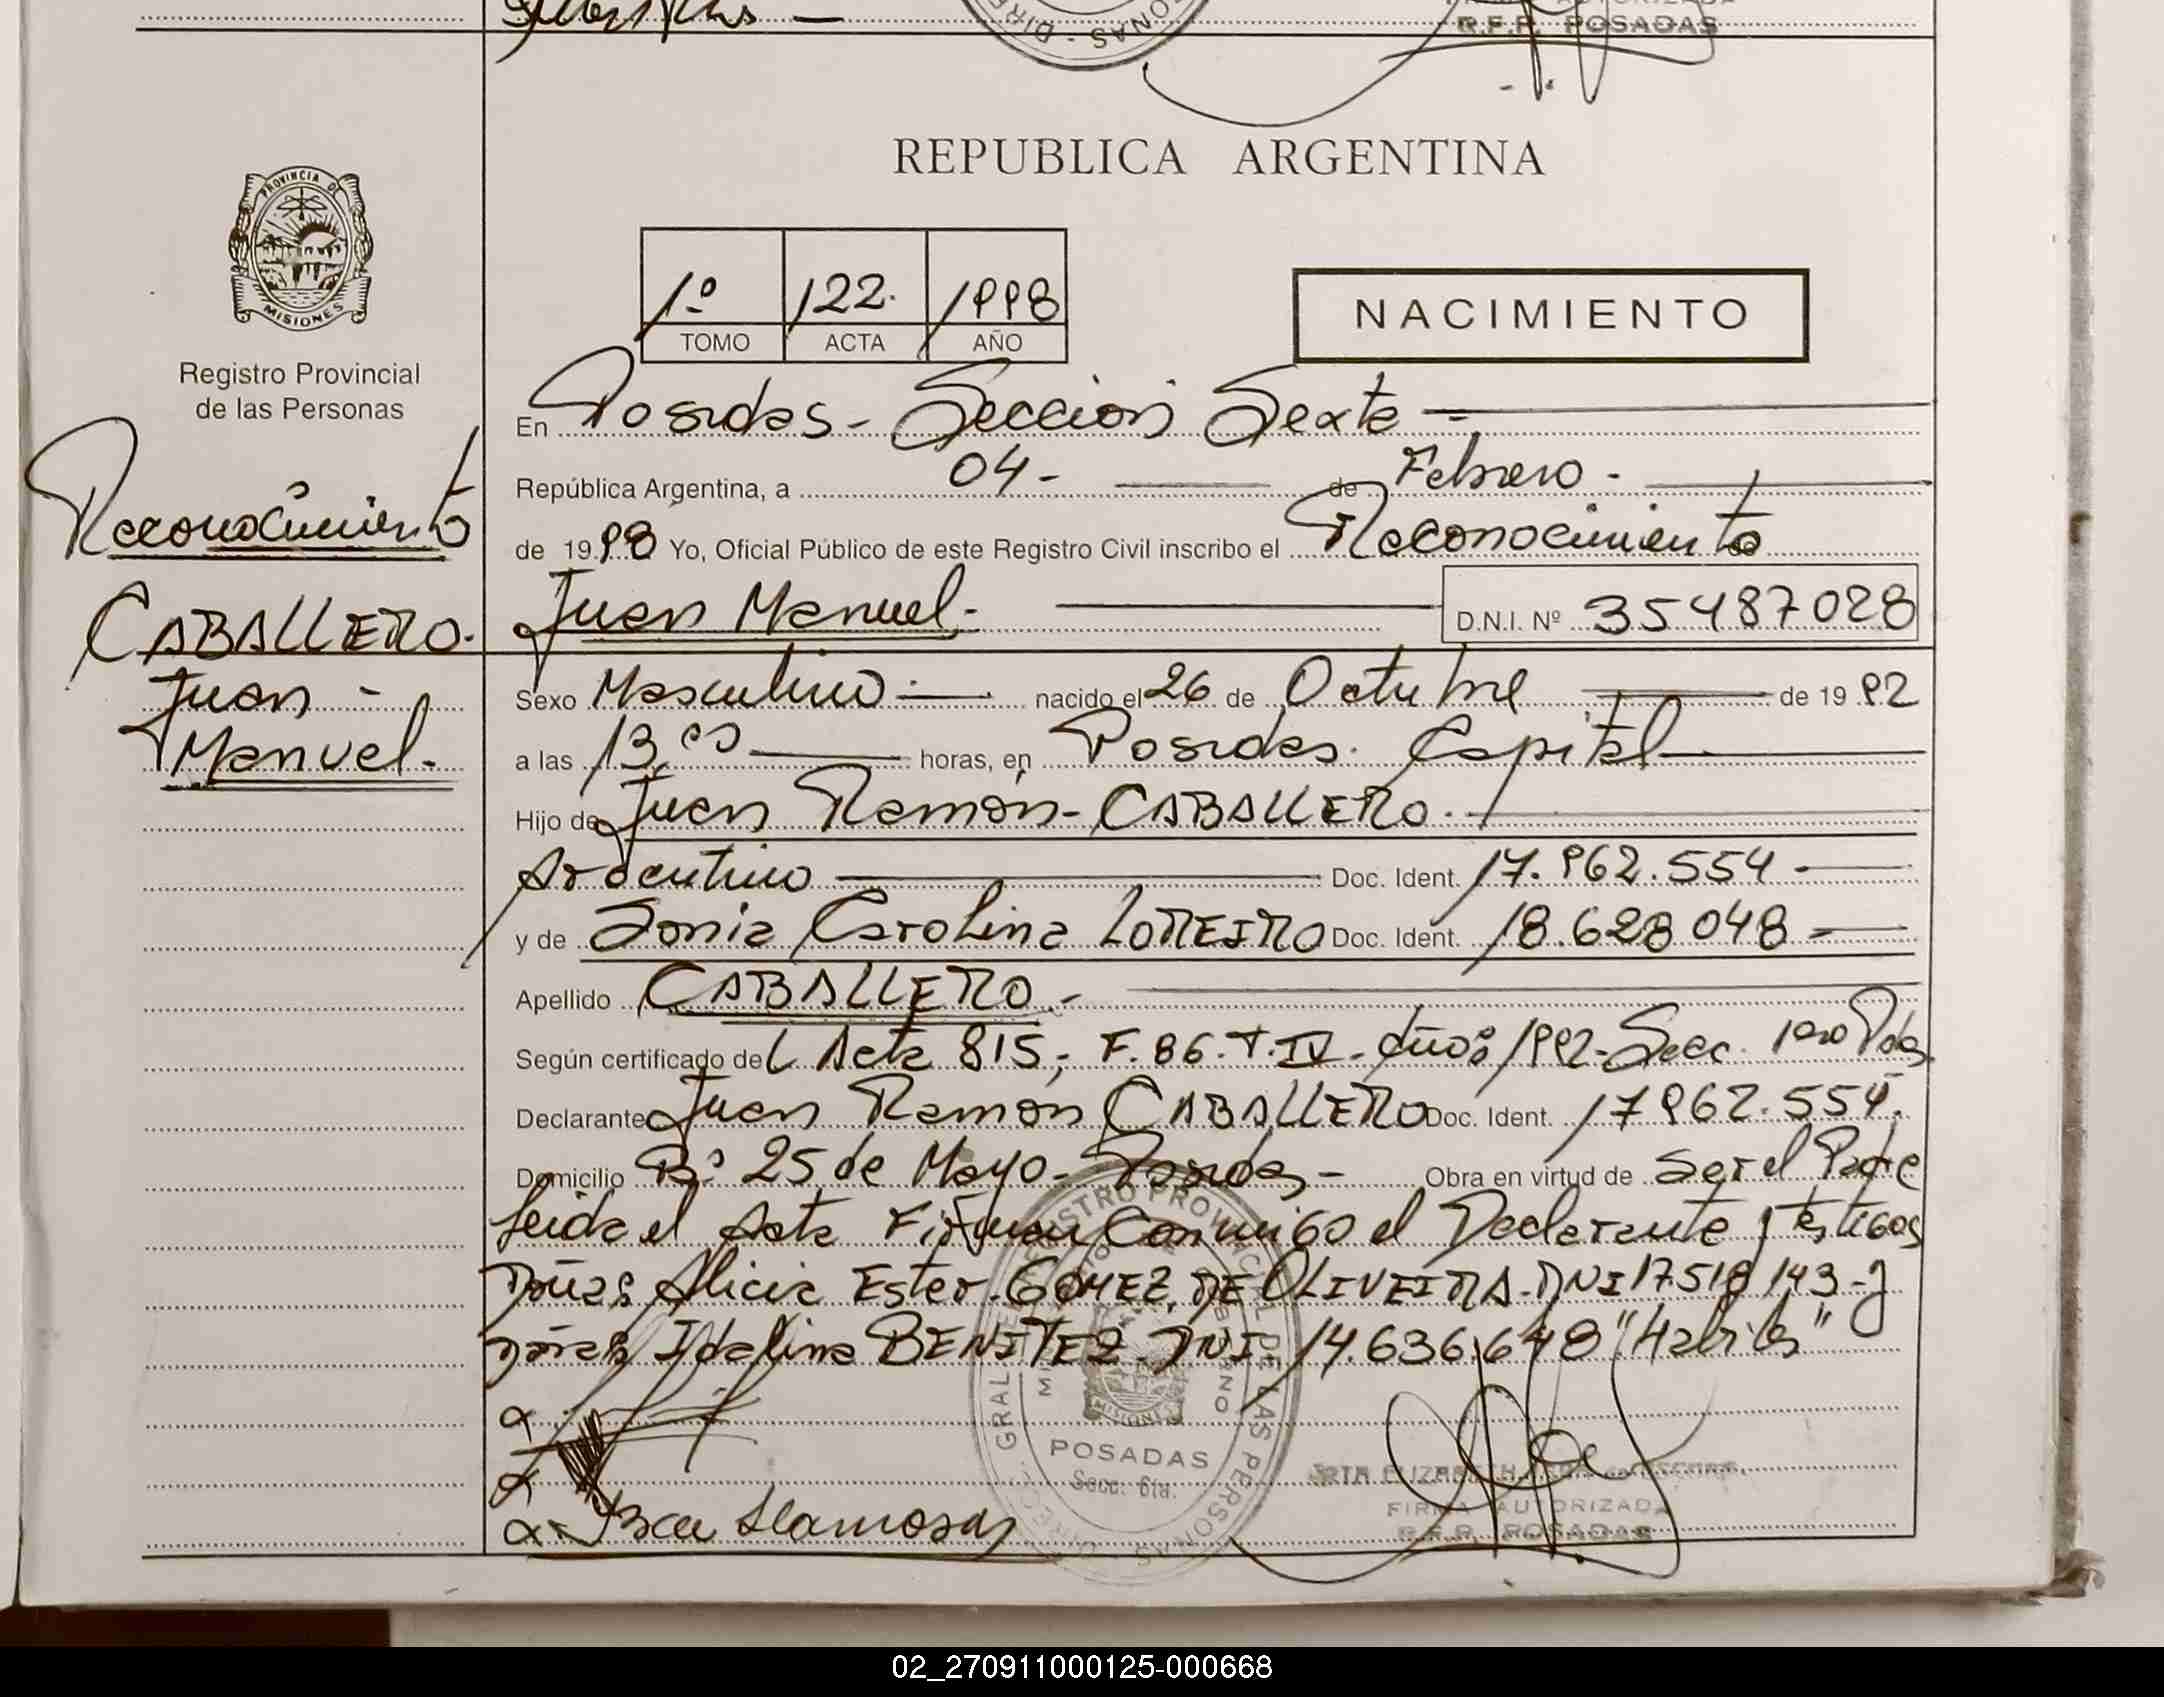 R.F.P. POSADAS
REPUBLICA ARGENTINA
PROVINCIA DE
MISIONES
1º 122. 1998
TOMO ACTA AÑO
NACIMIENTO
Registro Provincial
de las Personas
En Posadas - Sección Sexta -
República Argentina, a 04 - de Febrero -
Reconocimiento
de 1998 Yo, Oficial Público de este Registro Civil inscribo el Reconocimiento
CABALLERO.
Juan Manuel - D.N.I. Nº 35487028
Juan -
Manuel.
Sexo Masculino - nacido el 26 de Octubre de 1992
a las 13,00 horas, en Posadas. Capital
Hijo de Juan Ramón - CABALLERO.
Argentino Doc. Ident. 17.962.554 -
y de Sonia Carolina LOREIRO Doc. Ident. 18.628 048 -
Apellido CABALLERO -
Según certificado de Acta 815, F. 86. T. IV - Año 1992 - Secc. 1ra Pdas
Declarante Juan Ramon CABALLERO Doc. Ident. 17962.554.
Domicilio Bº 25 de Mayo - Posadas - Obra en virtud de ser el Padre
Leida el Acta Firman Conmigo el Declarante y testigos
Alicia Ester GOMEZ DE OLIVEIRA - DNI 17.518 143 - y
Idalina BENITEZ - DNI 14.636.648 "Habiles"
POSADAS
Secc. 6ta.
FIRMA AUTORIZADA
R.F.P. POSADAS
02_270911000125-000668